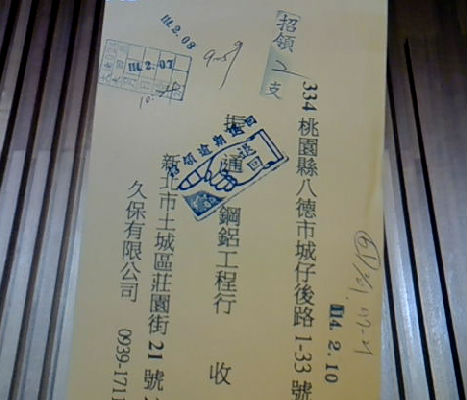 招領
支
334 桃園縣八德市城仔後路 1-33 號
114.2.10
振通鋼鋁工程行 收
招領逾期
退回
新北市土城區莊園街 21 號
久保有限公司 0939-171
114.2.08
114.2.07